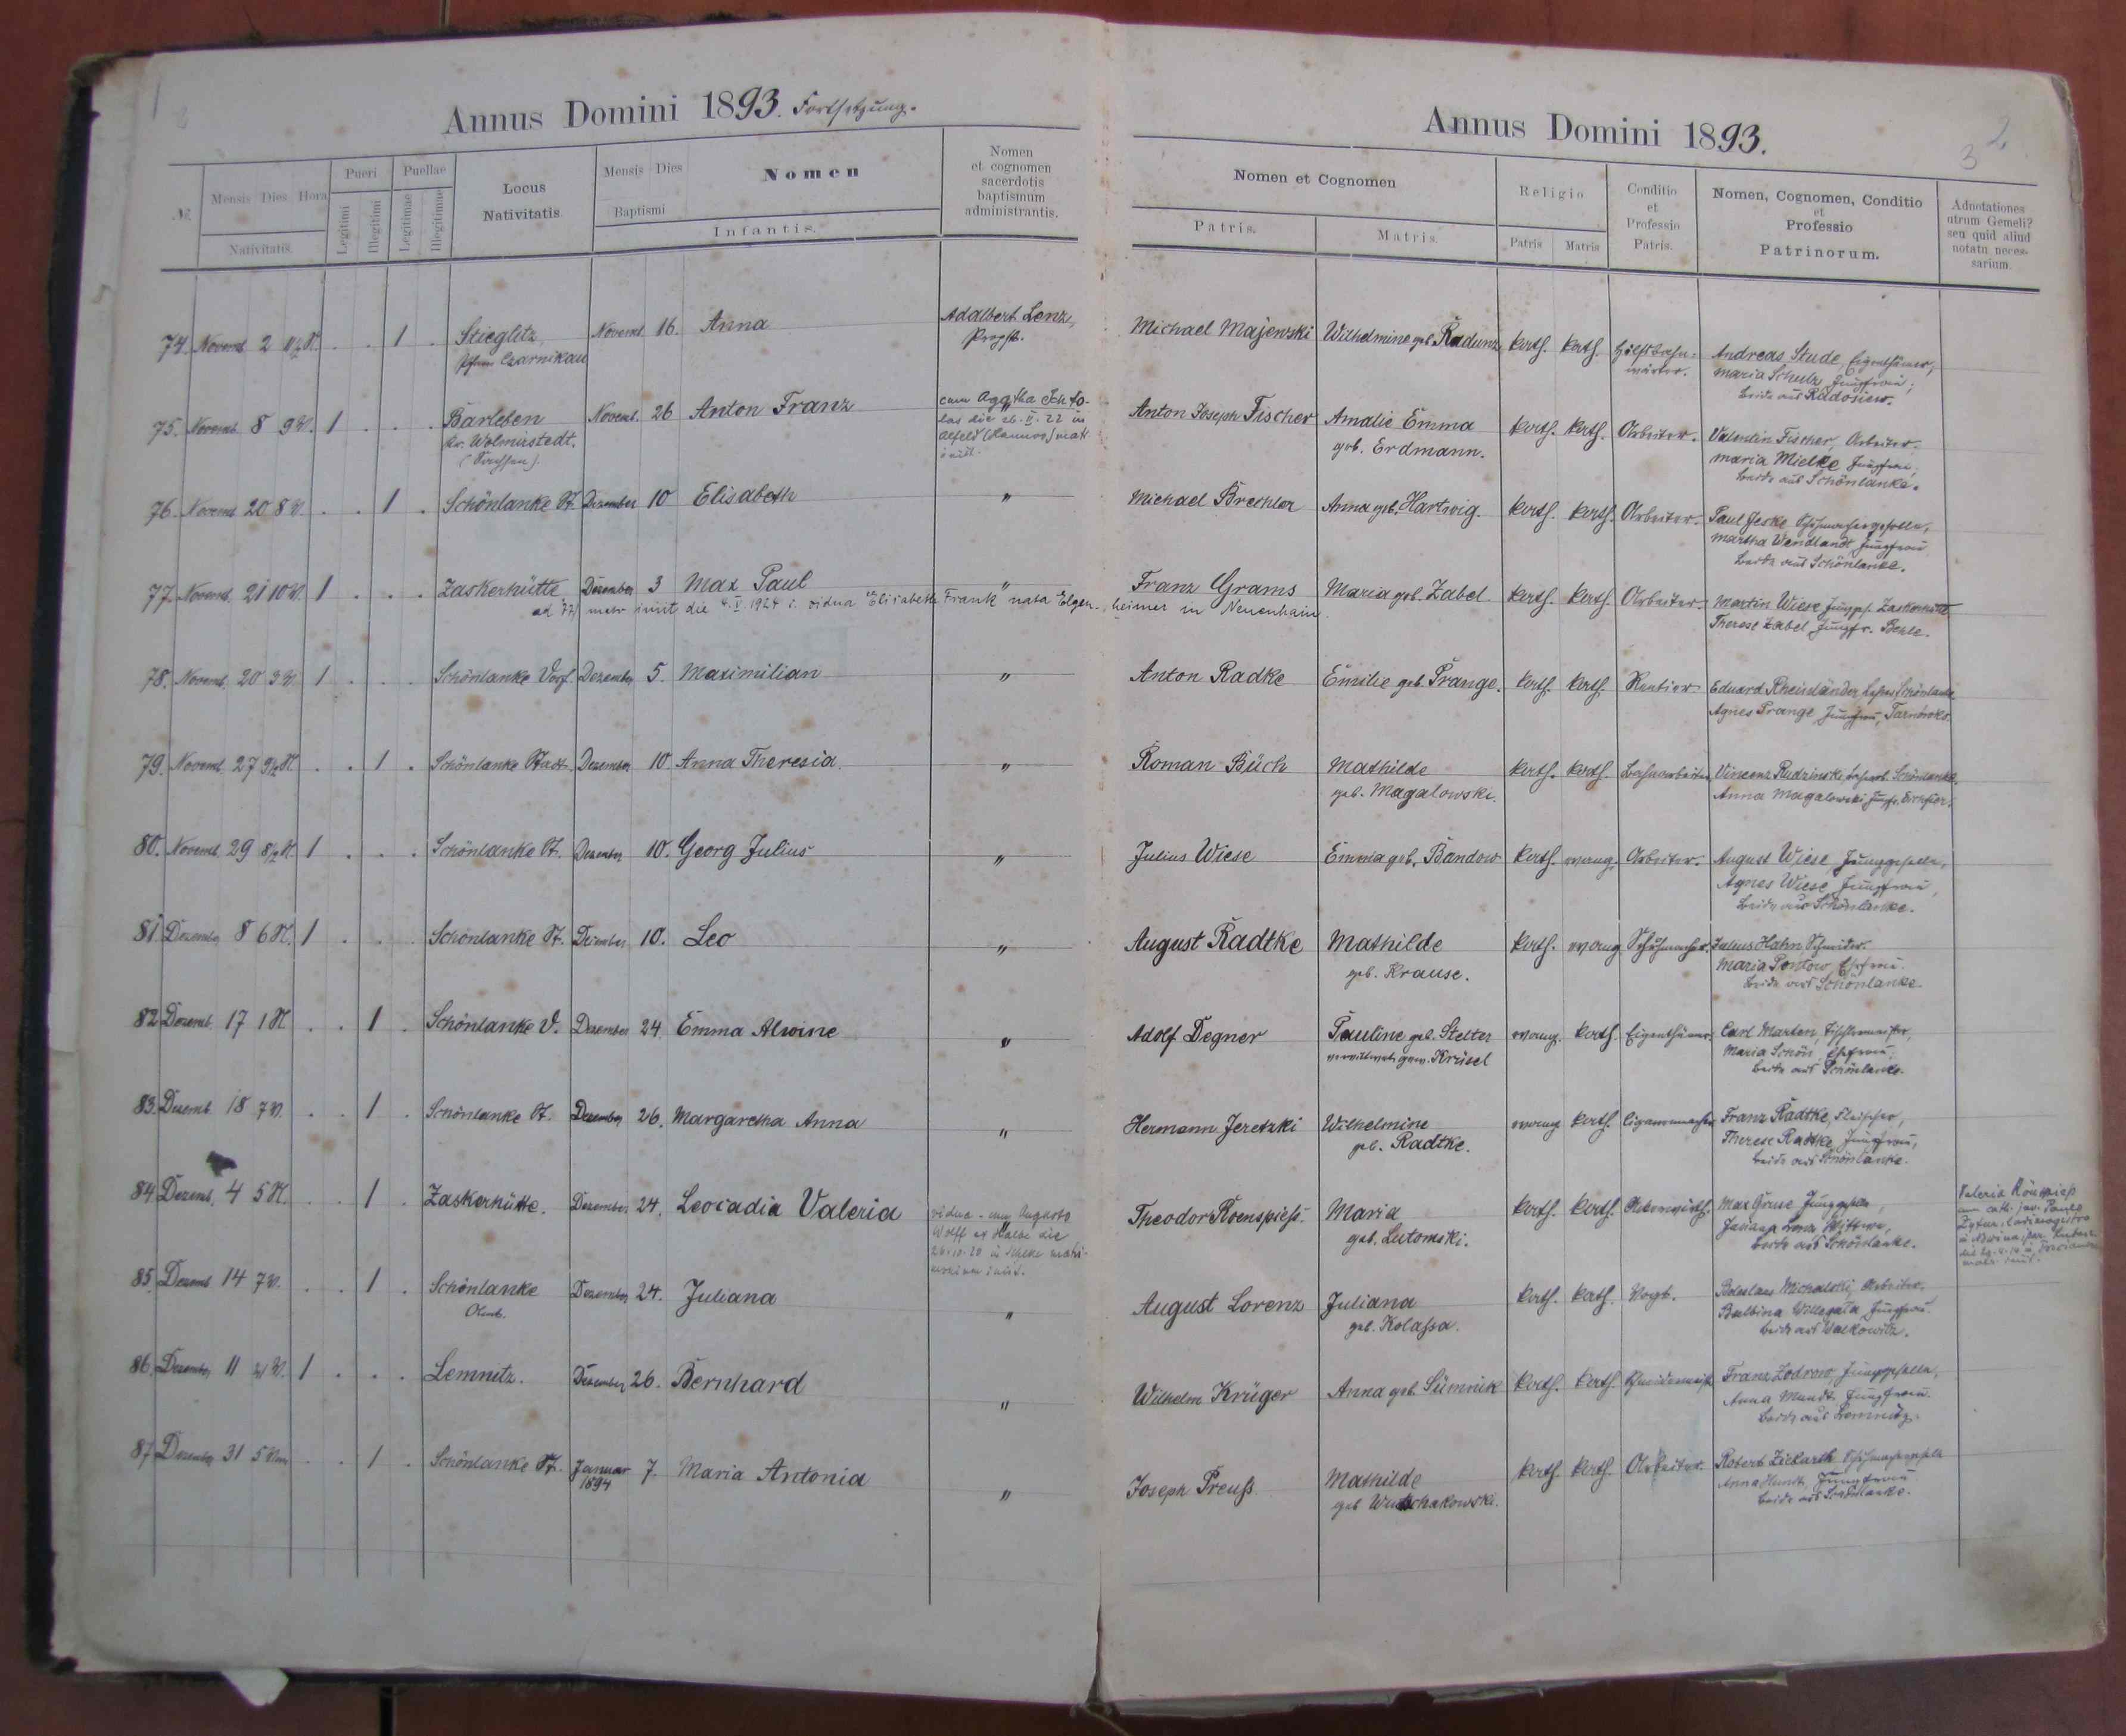 Annus Domini 1893. Fortsetzung.
№
Mensis Dies Hora
Nativitatis.
Pueri
Legitimi
Illegitimi
Puellae
Legitimae
Illegitimae
Locus
Nativitatis
Mensis Dies
Baptismi
Nomen
Infantis.
Nomen
et cognomen
sacerdotis
baptismum
administrantis.
74. Novemb. 2 . . 1 . Stieglitz, Novemb. 16. Anna Adalbert Lenz,
Czarnikau Propst.
75. Novemb. 8 9 V. 1 . . . Barleben Novemb. 26 Anton Franz
Kr. Wolmirstedt.
(Sachsen).
cum Agatha
die 26. II. 22 in
Alfeld (Hannov) mat
iniit.
76. Novemb. 20 8 V. . . 1 . Schönlanke St. Dezember 10 Elisabeth "
77. Novemb. 21 10 V. 1 . . . Zaskerhütte Dezember 3 Max Paul "
ad 77) matr iniit die 4. V. 1924 c. vidua Elisabeth Frank nata Elgen-heimer in Neuenhain
78. Novemb. 20 3 V. 1 . . . Schönlanke Dezember 5. Maximilian "
79. Novemb. 27 9½ N. . . 1 . Schönlanke Stadt. Dezember 10 Anna Theresia. "
80. Novemb. 29 8½ N. 1 . . . Schönlanke St. Dezember 10. Georg Julius "
81. Dezember 8 6 N. 1 . . . Schönlanke St. Dezember 10. Leo "
82 Dezemb. 17 1 N . . 1 . Schönlanke V. Dezember 24. Emma Alwine "
83. Dezemb. 18 7 V. . . 1 . Schönlanke St. Dezember 26. Margaretha Anna "
84. Dezemb. 4 5 N. . . 1 . Zaskerhütte. Dezember 24. Leocadia Valeria "
vidua cum Augusto
Wolff ex die
26.10.20 in matri-
monium iniit.
85. Dezemb. 14 7 V. . . 1 . Schönlanke Dezember 24. Juliana "
86. Dezember 11 V. 1 . . . Lemnitz. Dezember 26. Bernhard "
87. Dezember 31 5 . . 1 . Schönlanke St. Januar 7. Maria Antonia "
1894
Annus Domini 1893.
3 2
Nomen et Cognomen
Patris.
Matris.
Religio
Patris Matris
Conditio
et
Professio
Patris.
Nomen, Cognomen, Conditio
et
Professio
Patrinorum.
Adnotationes
utrum Gemeli?
seu quid aliud
notatu neces-
sarium.
Michael Majewski Wilhelmine geb. Radunz kath. kath. Hülfsbahn-
wärter.
Andreas Stude, Eigenthümer,
Maria Schulz, Jungfrau;
beide aus Radosiew.
Anton Joseph Fischer Amalie Emma kath. kath. Arbeiter.
geb. Erdmann.
Valentin Fischer, Arbeiter.
Maria Mielke Jungfrau;
beide aus Schönlanke.
Michael Brechler Anna geb. Hartwig. kath. kath. Arbeiter.
Paul Jeske Schuhmachergeselle,
Martha Wendlandt Jungfrau
beide aus Schönlanke.
Franz Grams Maria geb. Zabel. kath. kath. Arbeiter
Martin Wiese Junggs. Zaskerhütte
Therese Zabel Jungfr. Behle.
Anton Radke Emilie geb. Prange. kath. kath. Rentier
Eduard Rheinländer, Lehrer Schönlanke
Agnes Prange Jungfrau,
Roman Büch Mathilde kath. kath. Bahnarbeiter
geb. Magalowski.
Vincenz Rudzinski, Schönlanke.
Anna Magalowski Jungfr.
Julius Wiese Emma geb. Bandow kath. evang. Arbeiter.
August Wiese, Junggeselle,
Agnes Wiese, Jungfrau,
beide aus Schönlanke.
August Radtke Mathilde kath. evang Schuhmacher.
geb. Krause.
Julius Hahn Schneider.
Maria Pontow, Ehefrau.
beide aus Schönlanke.
Adolf Degner Pauline geb. Stelter evang. kath. Eigenthümer.
verwittwet gew. Krüsel
Carl Marten, Tischlermeister,
Maria Schön Ehefrau,
beide aus Schönlanke.
Hermann Jeretzki Wilhelmine evang kath. Cigarrenmacher
geb. Radtke.
Franz Radtke, Fleischer,
Therese Radtke, Jungfrau,
beide aus Schönlanke.
Theodor Roenspiess. Maria kath. kath. Ackerwirth.
geb. Lutomski.
Max Gruse Junggeselle,
Wittwe,
beide aus Schönlanke.
Valeria Rönspiess
cum cath. juv. Paulo
August Lorenz Juliana kath. kath. Vogt.
geb. Kolassa.
Boleslaus Michalski, Arbeiter.
Balbina Jungfrau.
beide aus Walkowitz.
Wilhelm Krüger Anna geb. Sümnik kath. kath.
Franz Zodrow, Junggeselle,
Anna Mundt, Jungfrau.
beide aus Lemnitz.
Joseph Preuss. Mathilde kath. kath. Arbeiter.
Robert Zickarth Schuhmachergeselle
Anna Jungfrau.
beide aus Schönlanke.